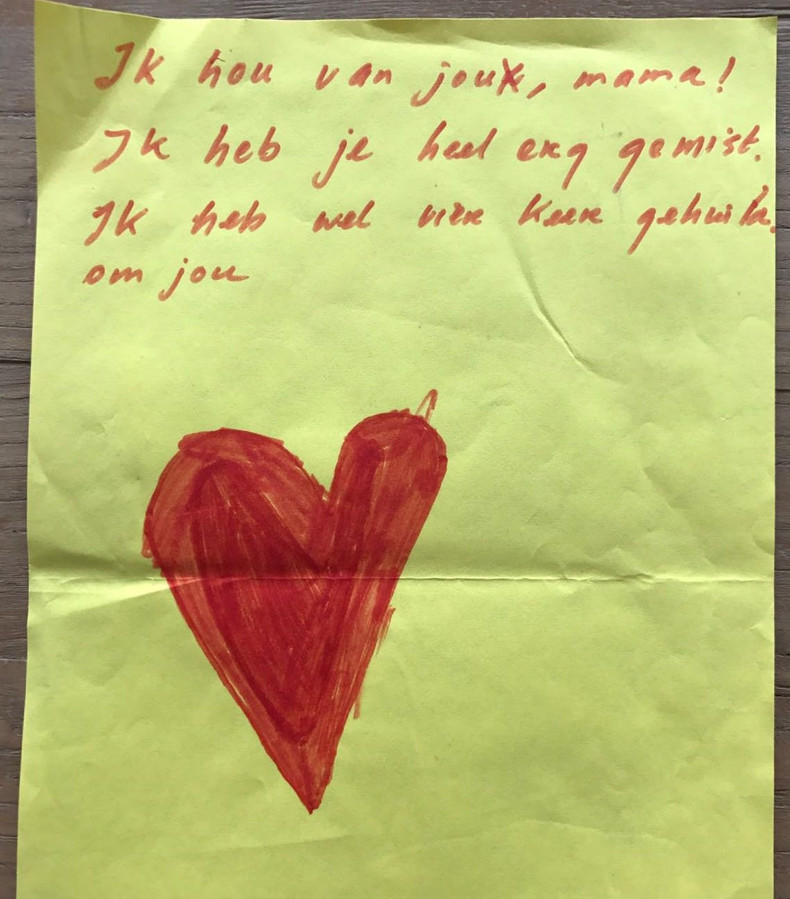 Ik hou van jou, mama!
Ik heb je heel erg gemist.
Ik heb wel vier keer gehuild.
om jou